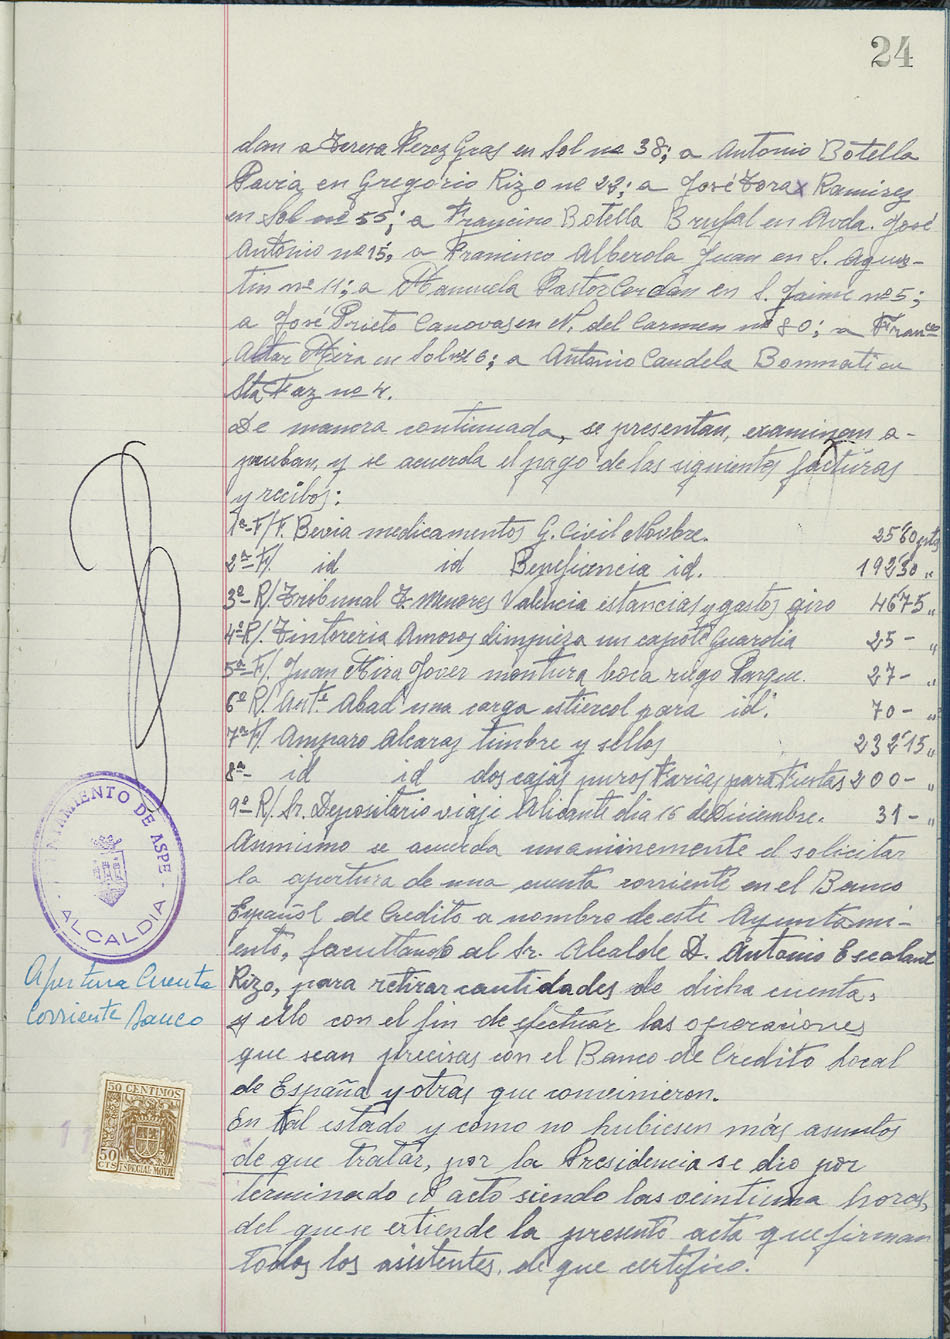 24
dan a Teresa Perez Gras en Sol nº 38; a Antonio Botella
Pavia en Gregorio Rizo nº 23; a José Tora x Ramirez
en Sol nº 55; a Francisco Botella Brufal en Avda. José
Antonio nº 15, a Francisco Alberola Juan en S. Agus-
tin nº 11; a Manuela Pastor Cerdan en S. Jaime nº 5;
a José Prieto Canovas en N. del Carmen nº 80; a Franco
Mira en Sol nº 6; a Antonio Candela Bonmati en
Sta Faz nº 4.
De manera continuada, se presentan, examinan a-
prueban, y se acuerda el pago de las siguientes facturas
y recibos:
1ª F/ F. Bevia medicamentos G. Civil Novbre. 25'60 ptas
2ª F/. id id Beneficencia id. 192'30 "
3º R/ Tribunal T. Menores Valencia estancias y gastos giro 46'75 "
4º R/. Tintoreria Amoros limpieza un capote Guardia 25- "
5ª F/. Juan Mira Jover montura boca riego Parque. 27- "
6º R. Antº Abad una carga estiercol para id. 70- "
7ª F/. Amparo Alcaraz timbre y sellos 232'15 "
8ª- id id dos cajas puros Farias para Fiestas 200- "
9º R/. Sr. Depositario viaje Alicante dia 16 de Diciembre. 31- "
Asimismo se acuerda unanimemente el solicitar
la apertura de una cuenta corriente en el Banco
Español de Credito a nombre de este Ayuntami-
ento, facultando al Sr. Alcalde D. Antonio Escalant
Rizo, para retirar cantidades de dicha cuenta,
y ello con el fin de efectuar las operaciones
que sean precisas con el Banco de Credito Local
de España y otras que convinieron.
En tal estado y como no hubiesen más asuntos
de que tratar, por la Presidencia se dio por
terminado el acto siendo las veintiuna horas,
del que se extiende la presente acta que firman
todos los asistentes, de que certifico.
AYUNTAMIENTO DE ASPE
ALCALDIA
Apertura Cuenta
Corriente Banco
50 CENTIMOS
50
CTS ESPECIAL MOVIL